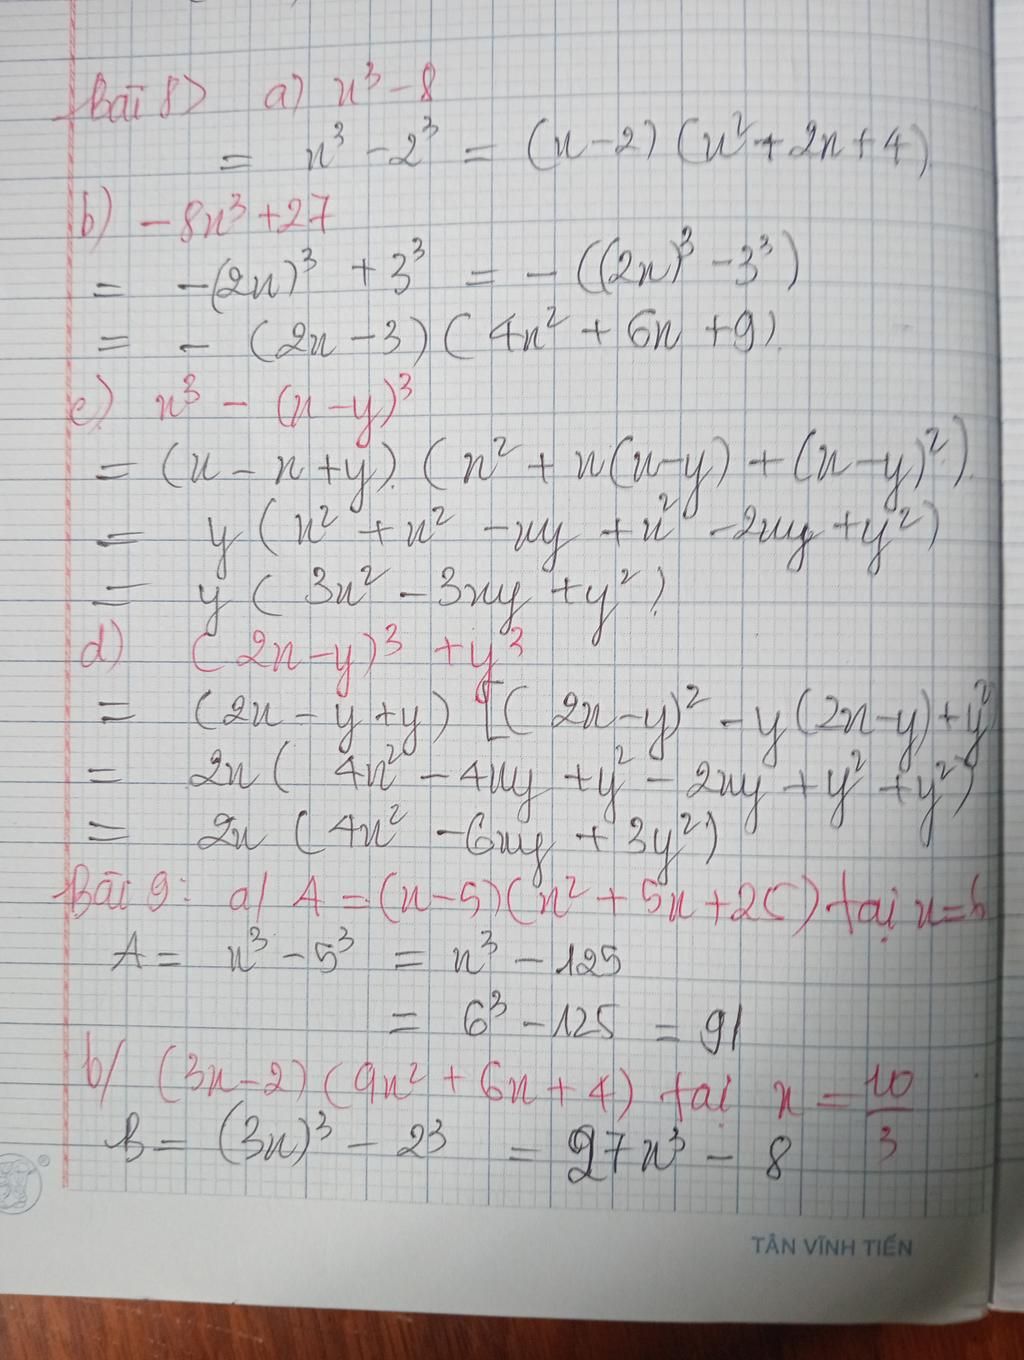 Bài 8> a) x³ - 8
= x³ - 2³ = (x-2) (x² + 2x + 4)
b) - 8x³ + 27
= -(2x)³ + 3³ = - ((2x)³ - 3³)
= - (2x - 3) ( 4x² + 6x + 9).
c) x³ - (x - y)³
= (x - x + y). ( x² + x(x-y) + (x-y)²).
= y ( x² + x² - xy + x² - 2xy + y²)
= y ( 3x² - 3xy + y²)
d) ( 2x-y)³ + y³
= (2x - y + y) [( 2x-y)² - y (2x-y) + y²
= 2x ( 4x² - 4xy + y² - 2xy + y² + y²)
= 2x ( 4x² - 6xy + 3y²)
Bài 9: a/ A = (x-5) (x² + 5x + 25) tại x=6
A = x³ - 5³ = x³ - 125
= 6³ - 125 = 91
b/ (3x-2) (9x² + 6x + 4) tại x = 10/3
B = (3x)³ - 2³ = 27x³ - 8
TÂN VĨNH TIẾN